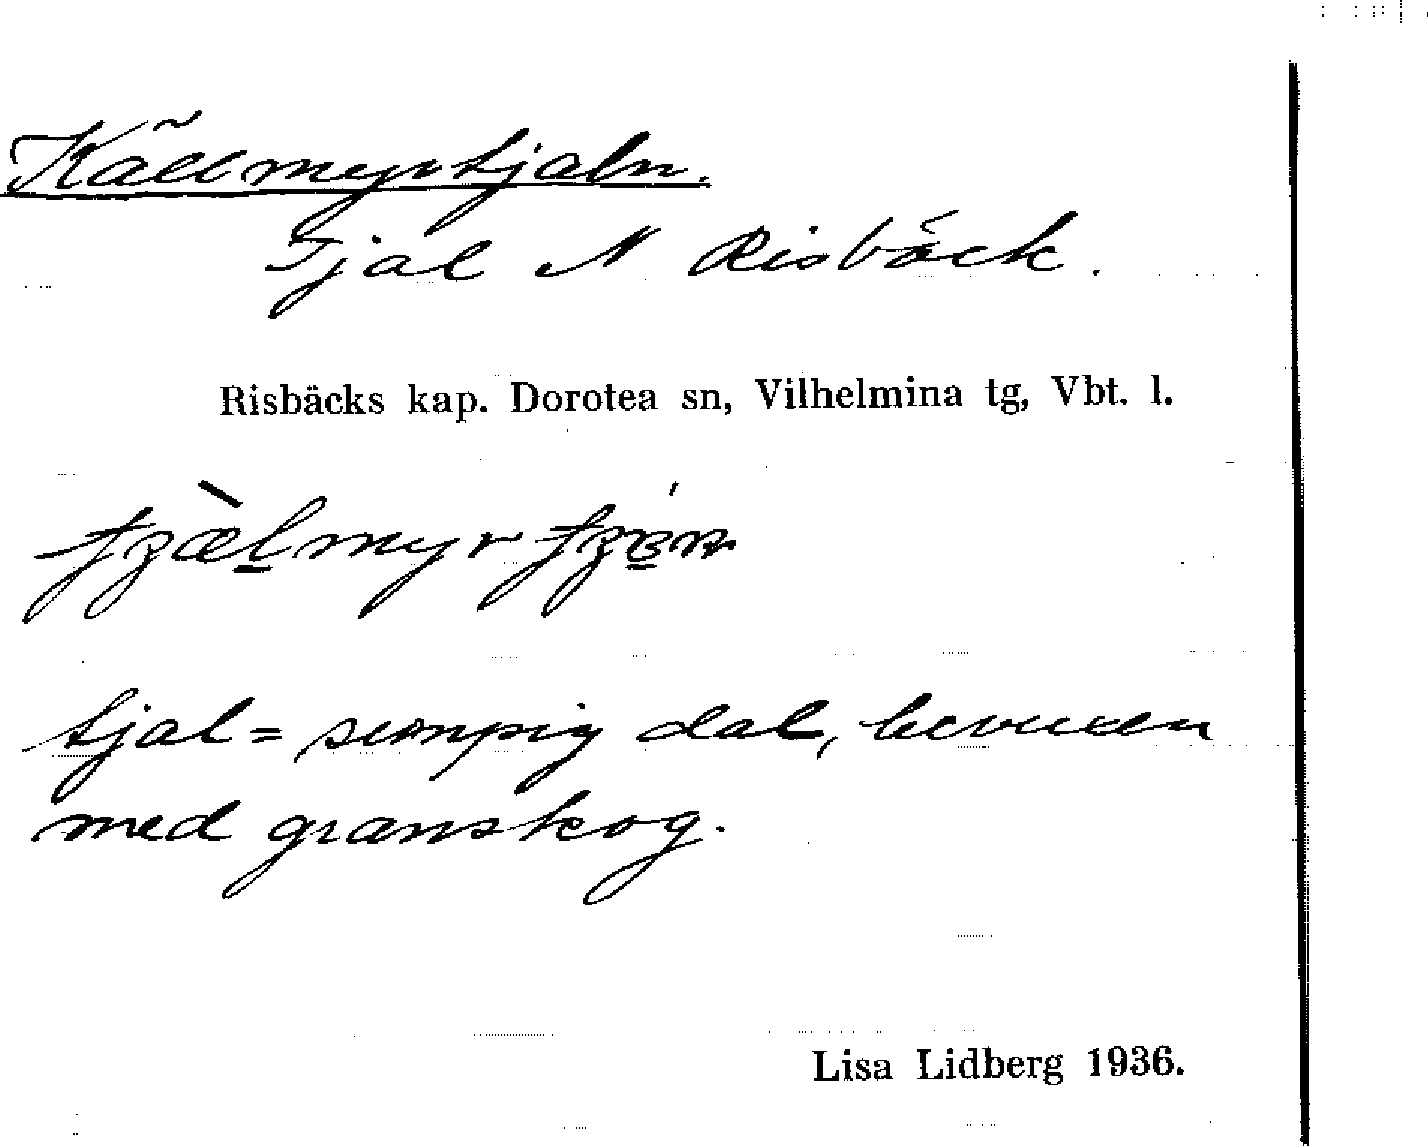 Källmyrtjaln.
Tjal N Risbäck.
Risbäcks kap. Dorotea sn, Vilhelmina tg, Vbt. l.
tjal = sumpig dal, bevuxen
med granskog.
Lisa Lidberg 1936.